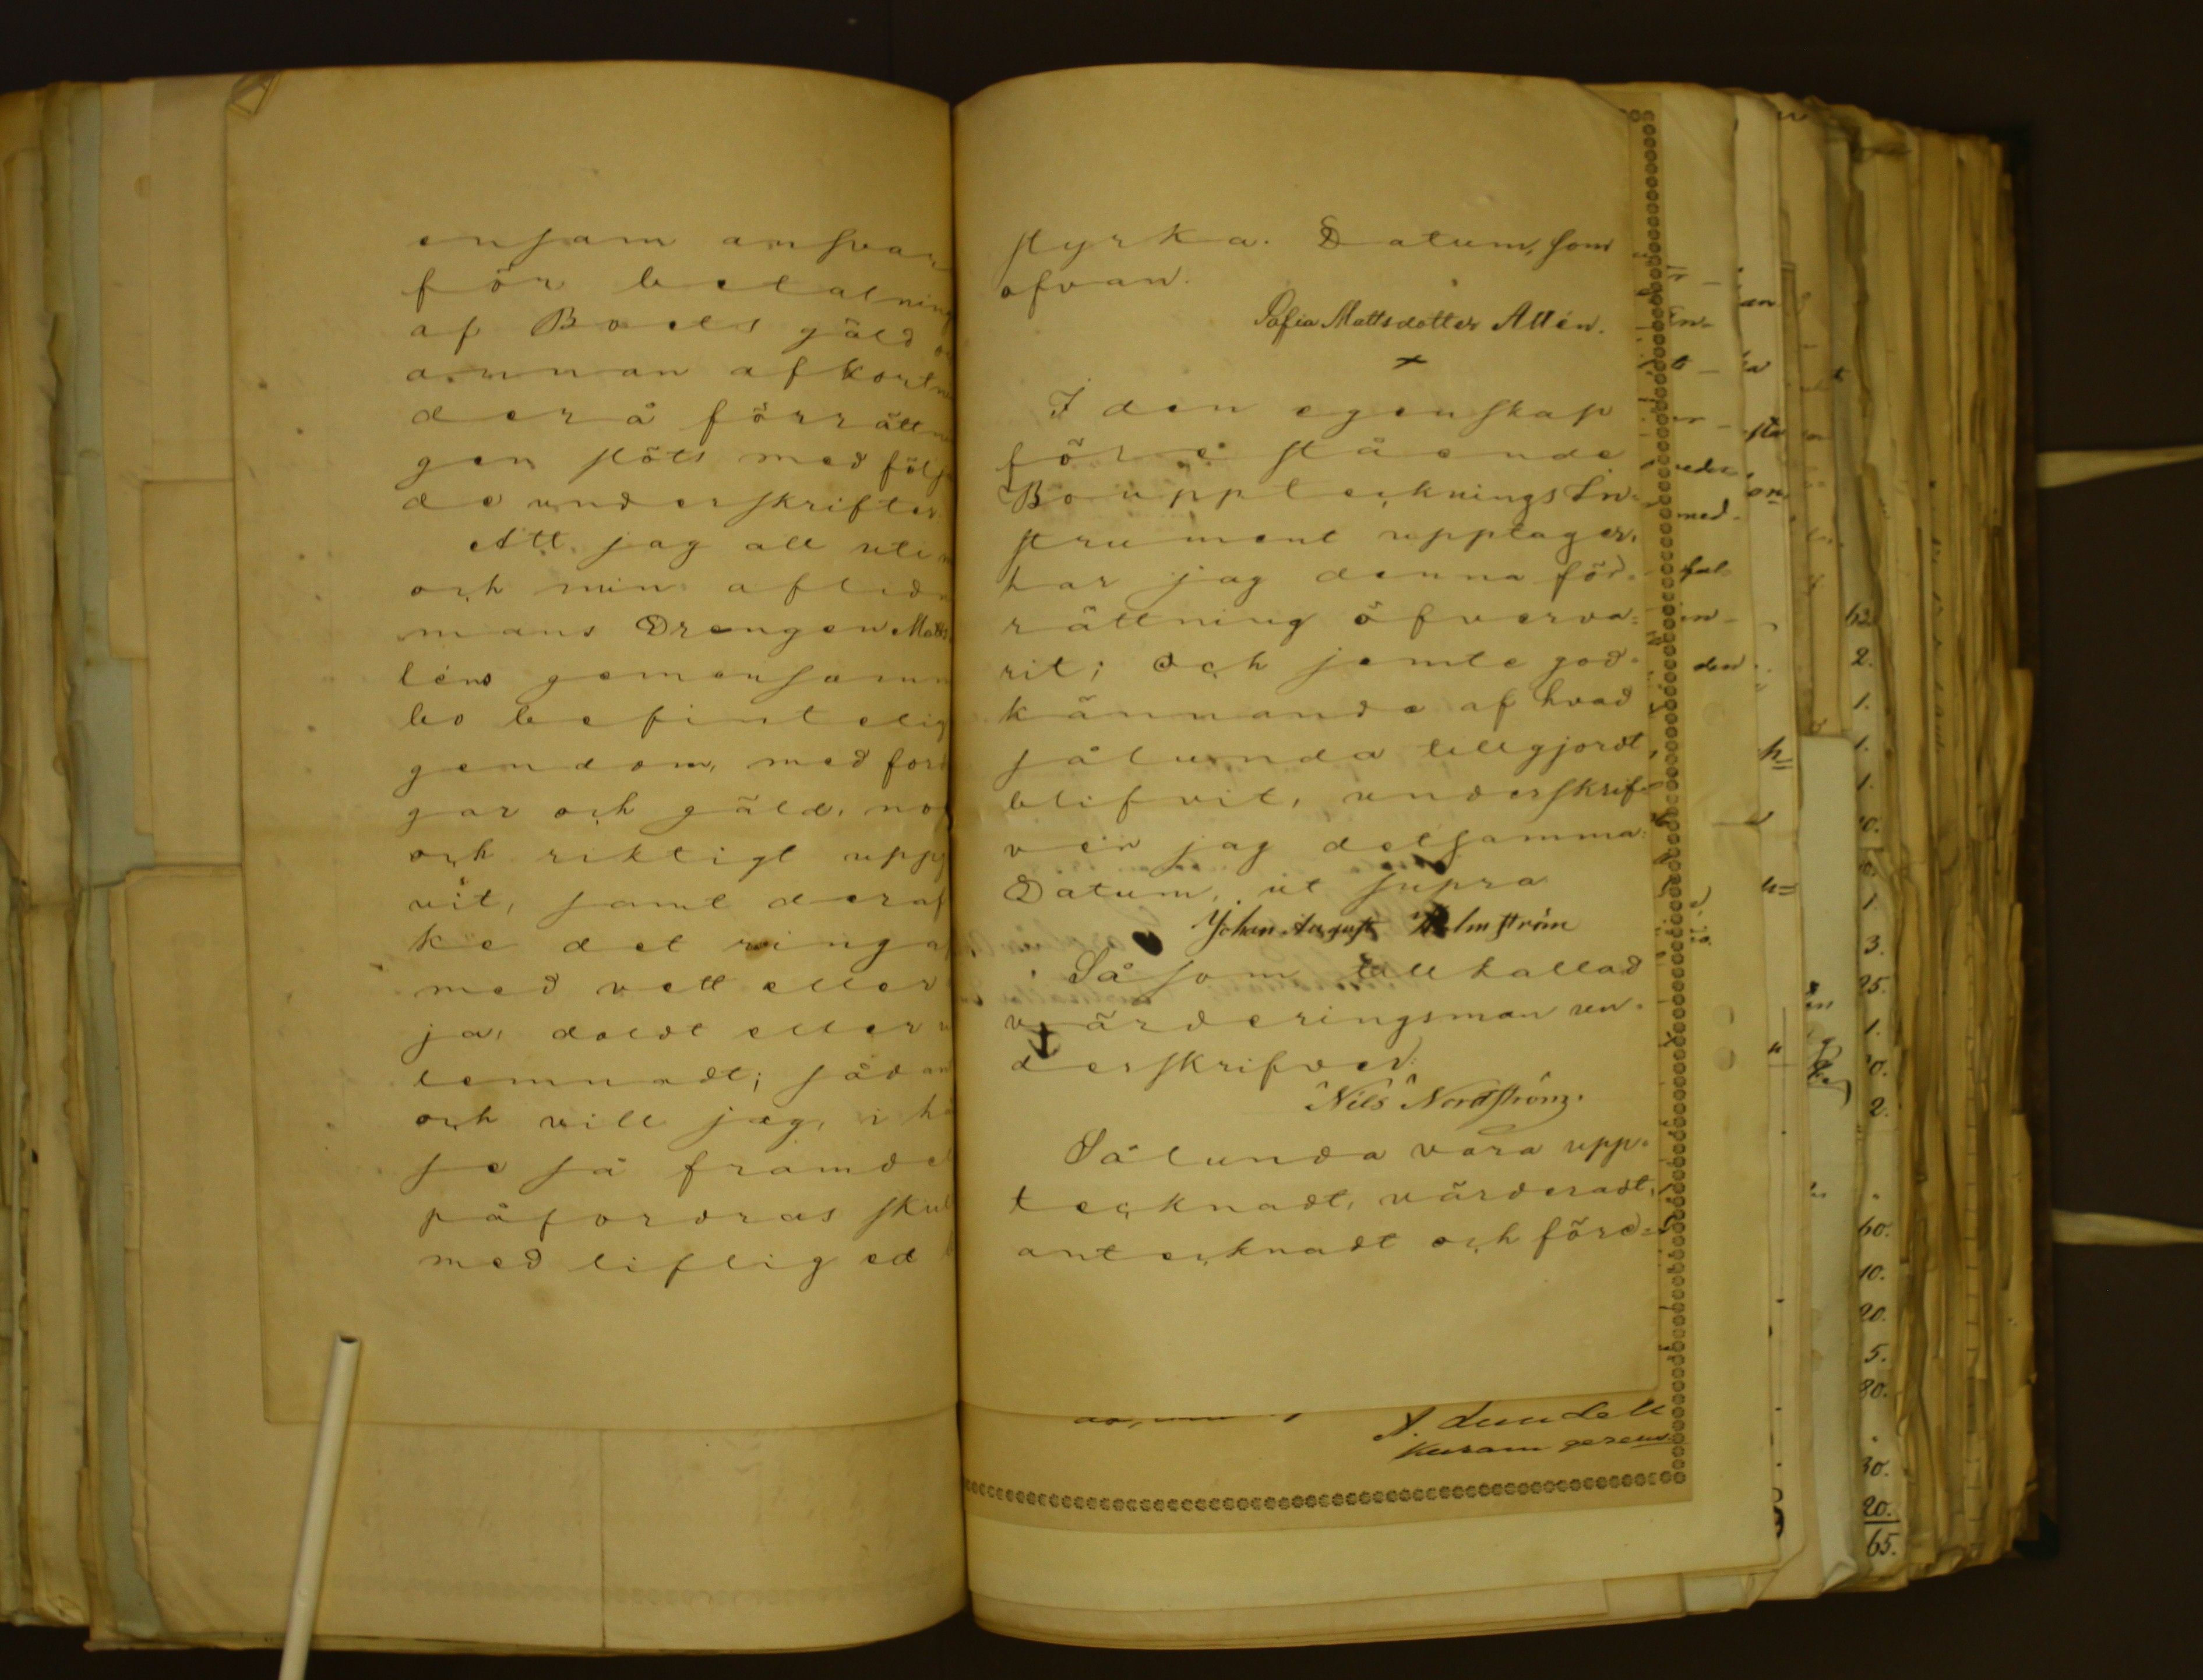 ensam ansvar
för betalning
af Boets gäld
annan afkortn
derå förrättn
gen slöts med följ
de underskrifter
Att jag all uti
och min aflidn
mans Drengen Matts
léns gemensamm
bo befintelig
gendom, med ford
gar och gäld, no
och riktigt uppg
vit, samt deraf
ke det ringa
med vett eller
ja, doldt eller
lemnadt; sådan
och vill jag, i hä
se så framdel
påfordras skul
med liflig ed
styrka. Datum, som
ofvan.
Sofia Mattsdotter Allén.
+
I den egenskap
förestående
Bouppteckningsin-
strument upptager,
har jag denna för-
rättning öfverva-
rit; och jemte god-
kännande af hvad
sålunda tillgjordt
blifvit, underskrif-
ver jag detsamma.
Datum, ut supra
Johan August Holmström
Såsom tillkallad
värderingsman un-
derskrifver:
Nils Nordström.
Sålunda vara upp-
tecknadt, värderadt,
antecknadt och förd-
A. Lundell